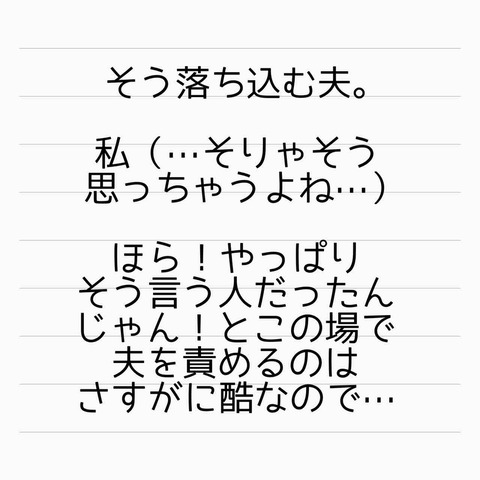 そう落ち込む夫。
私（…そりゃそう
思っちゃうよね…）
ほら！やっぱり
そう言う人だったん
じゃん！とこの場で
夫を責めるのは
さすがに酷なので…